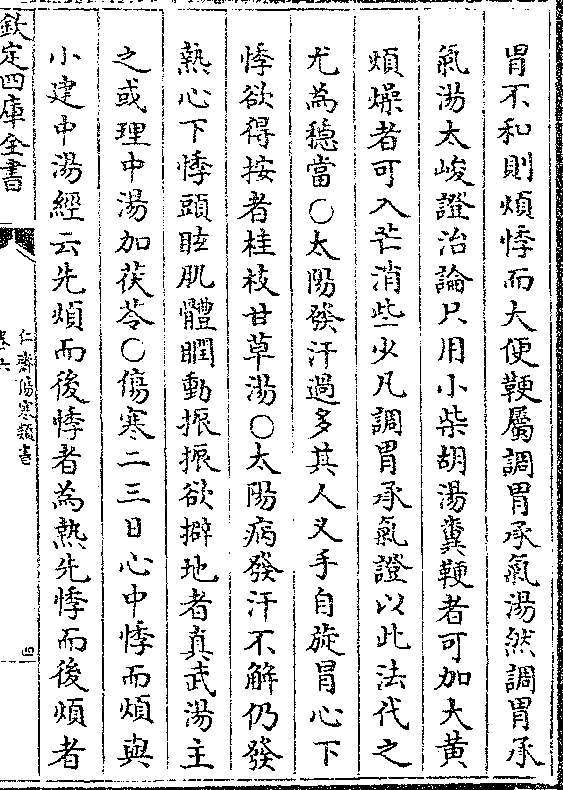 胃不和則煩悸而大便鞕屬調胃承氣湯然調胃承
氣湯太峻證治論只用小柴胡湯糞鞕者可加大黄
煩燥者可入芒消些少凡調胃承氣證以此法代之
尤為穏當○太陽發汗過多其人乂手自旋胃心下
悸欲得按者桂枝甘草湯○太陽病發汗不解仍發
熱心下悸頭眩肌體瞤動振振欲擗地者真武湯主
之或理中湯加茯苓○傷寒二三日心中悸而煩與
小建中湯經云先煩而後悸者為熱先悸而後煩者
欽定四庫全書
仁齋傷寒類書